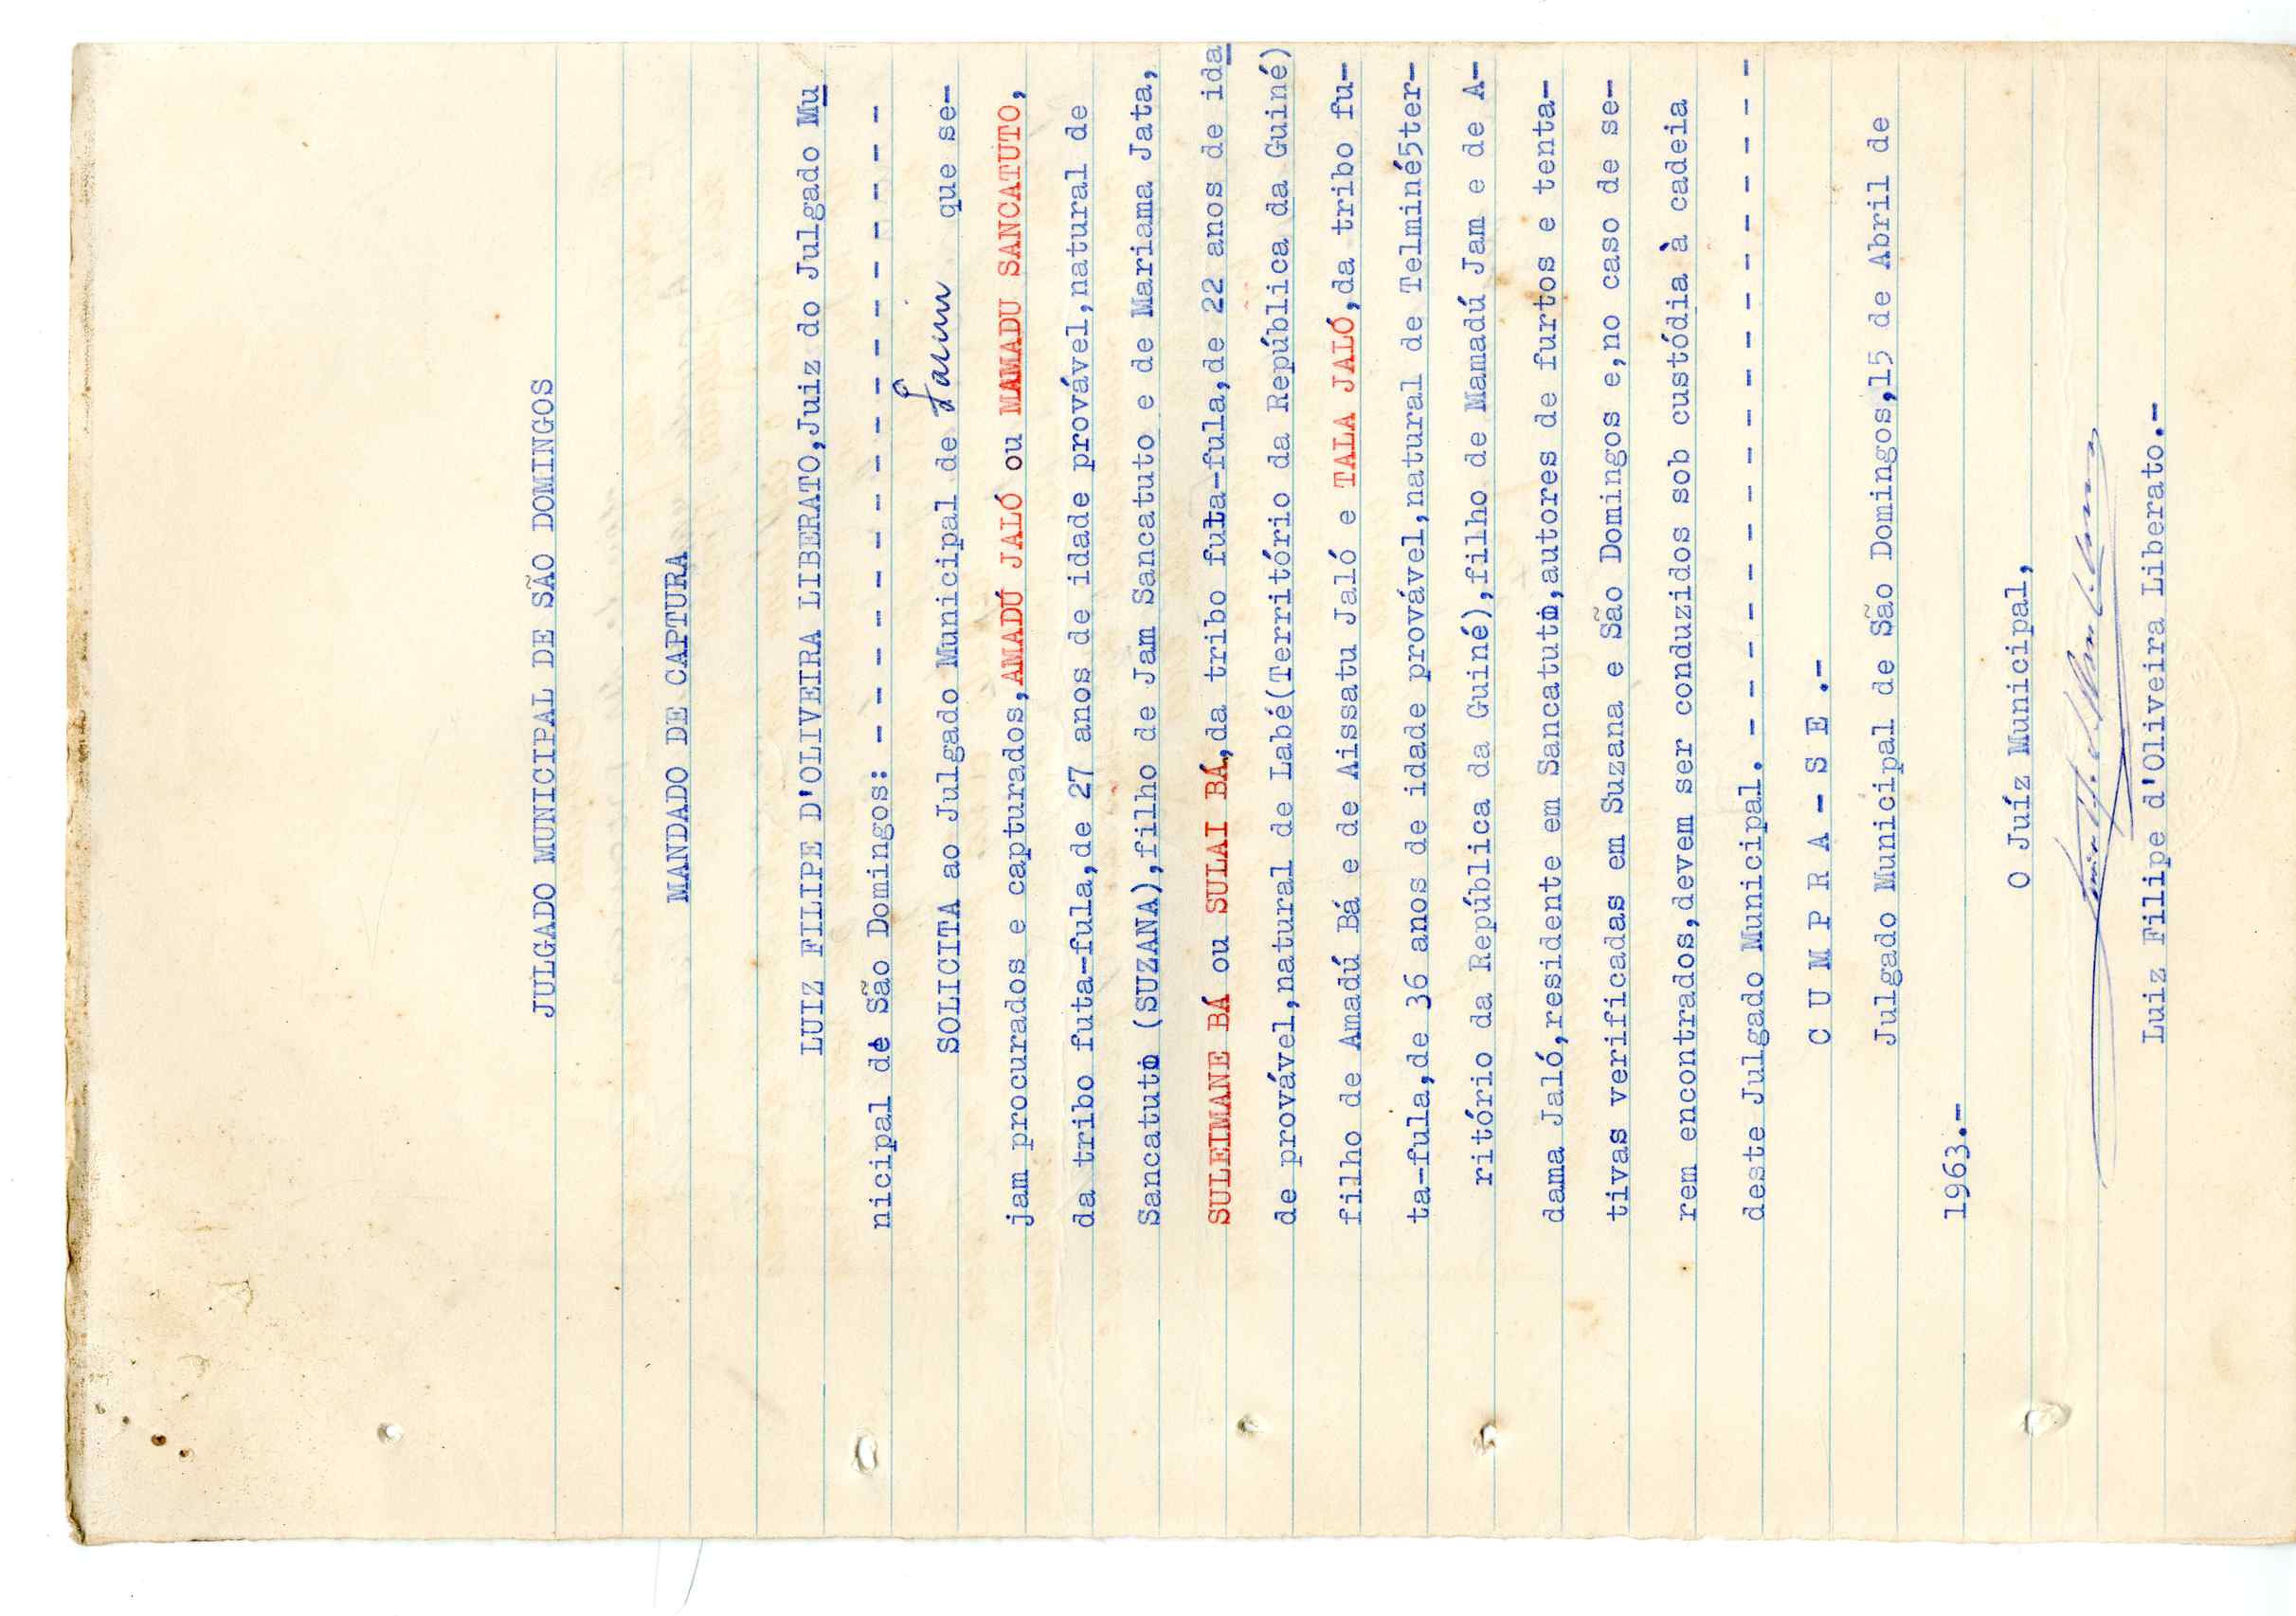 JULGADO MUNICIPAL DE SÃO DOMINGOS
MANDADO DE CAPTURA
LUIZ FILIPE D'OLIVEIRA LIBERATO,Juiz do Julgado Mu
nicipal de São Domingos: - - - - - - - - - - - - - - - - -
SOLICITA ao Julgado Municipal de Farim que se-
jam procurados e capturados,AMADÚ JALÓ ou MAMADU SANCATUTO,
da tribo futa-fula,de 27 anos de idade provável,natural de
Sancatuto (SUZANA),filho de Jam Sancatuto e de Mariama Jata,
SULEIMANE BÁ ou SULAI BÁ,da tribo futa-fula,de 22 anos de ida
de provável,natural de Labé(Território da República da Guiné)
filho de Amadú Bá e de Aissatu Jaló e TALA JALÓ,da tribo fu-
ta-fula,de 36 anos de idade provável,natural de Telminé5ter-
ritório da República da Guiné),filho de Mamadú Jam e de A-
dama Jaló,residente em Sancatuto,autores de furtos e tenta-
tivas verificadas em Suzana e São Domingos e,no caso de se-
rem encontrados,devem ser conduzidos sob custódia à cadeia
deste Julgado Municipal. - - - - - - - - - - - - - - - - -
C U M P R A - S E .-
Julgado Municipal de São Domingos,15 de Abril de
1963.-
O Juíz Municipal,
Luiz Filipe d'Oliveira Liberato.-